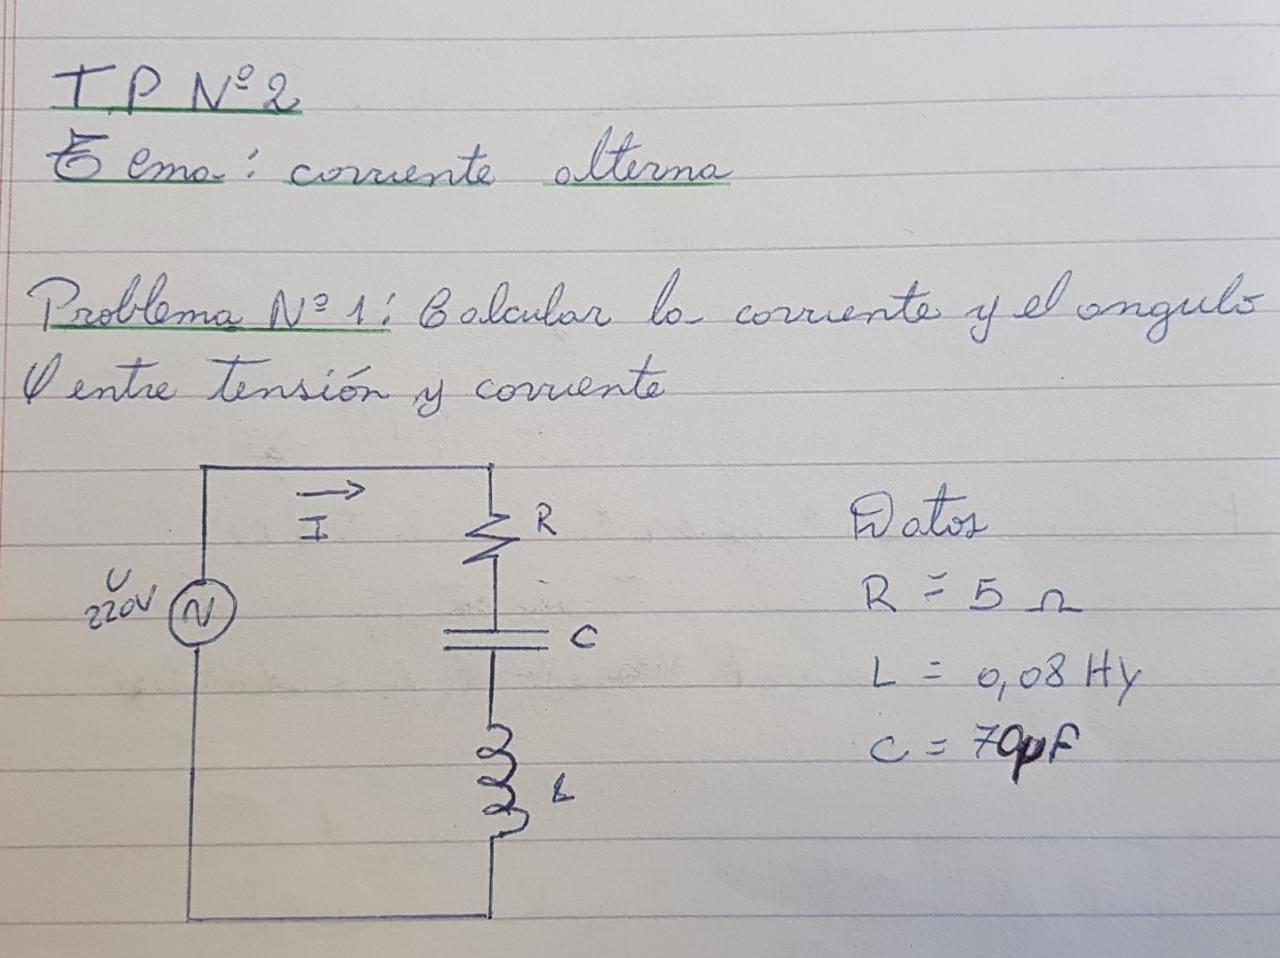 T P Nº 2
Tema: corriente alterna
Problema Nº 1: Calcular la corriente y el angulo
φ entre tensión y corriente
I
R
U
220V
C
L
Datos
R = 5 Ω
L = 0,08 Hy
C = 70µF